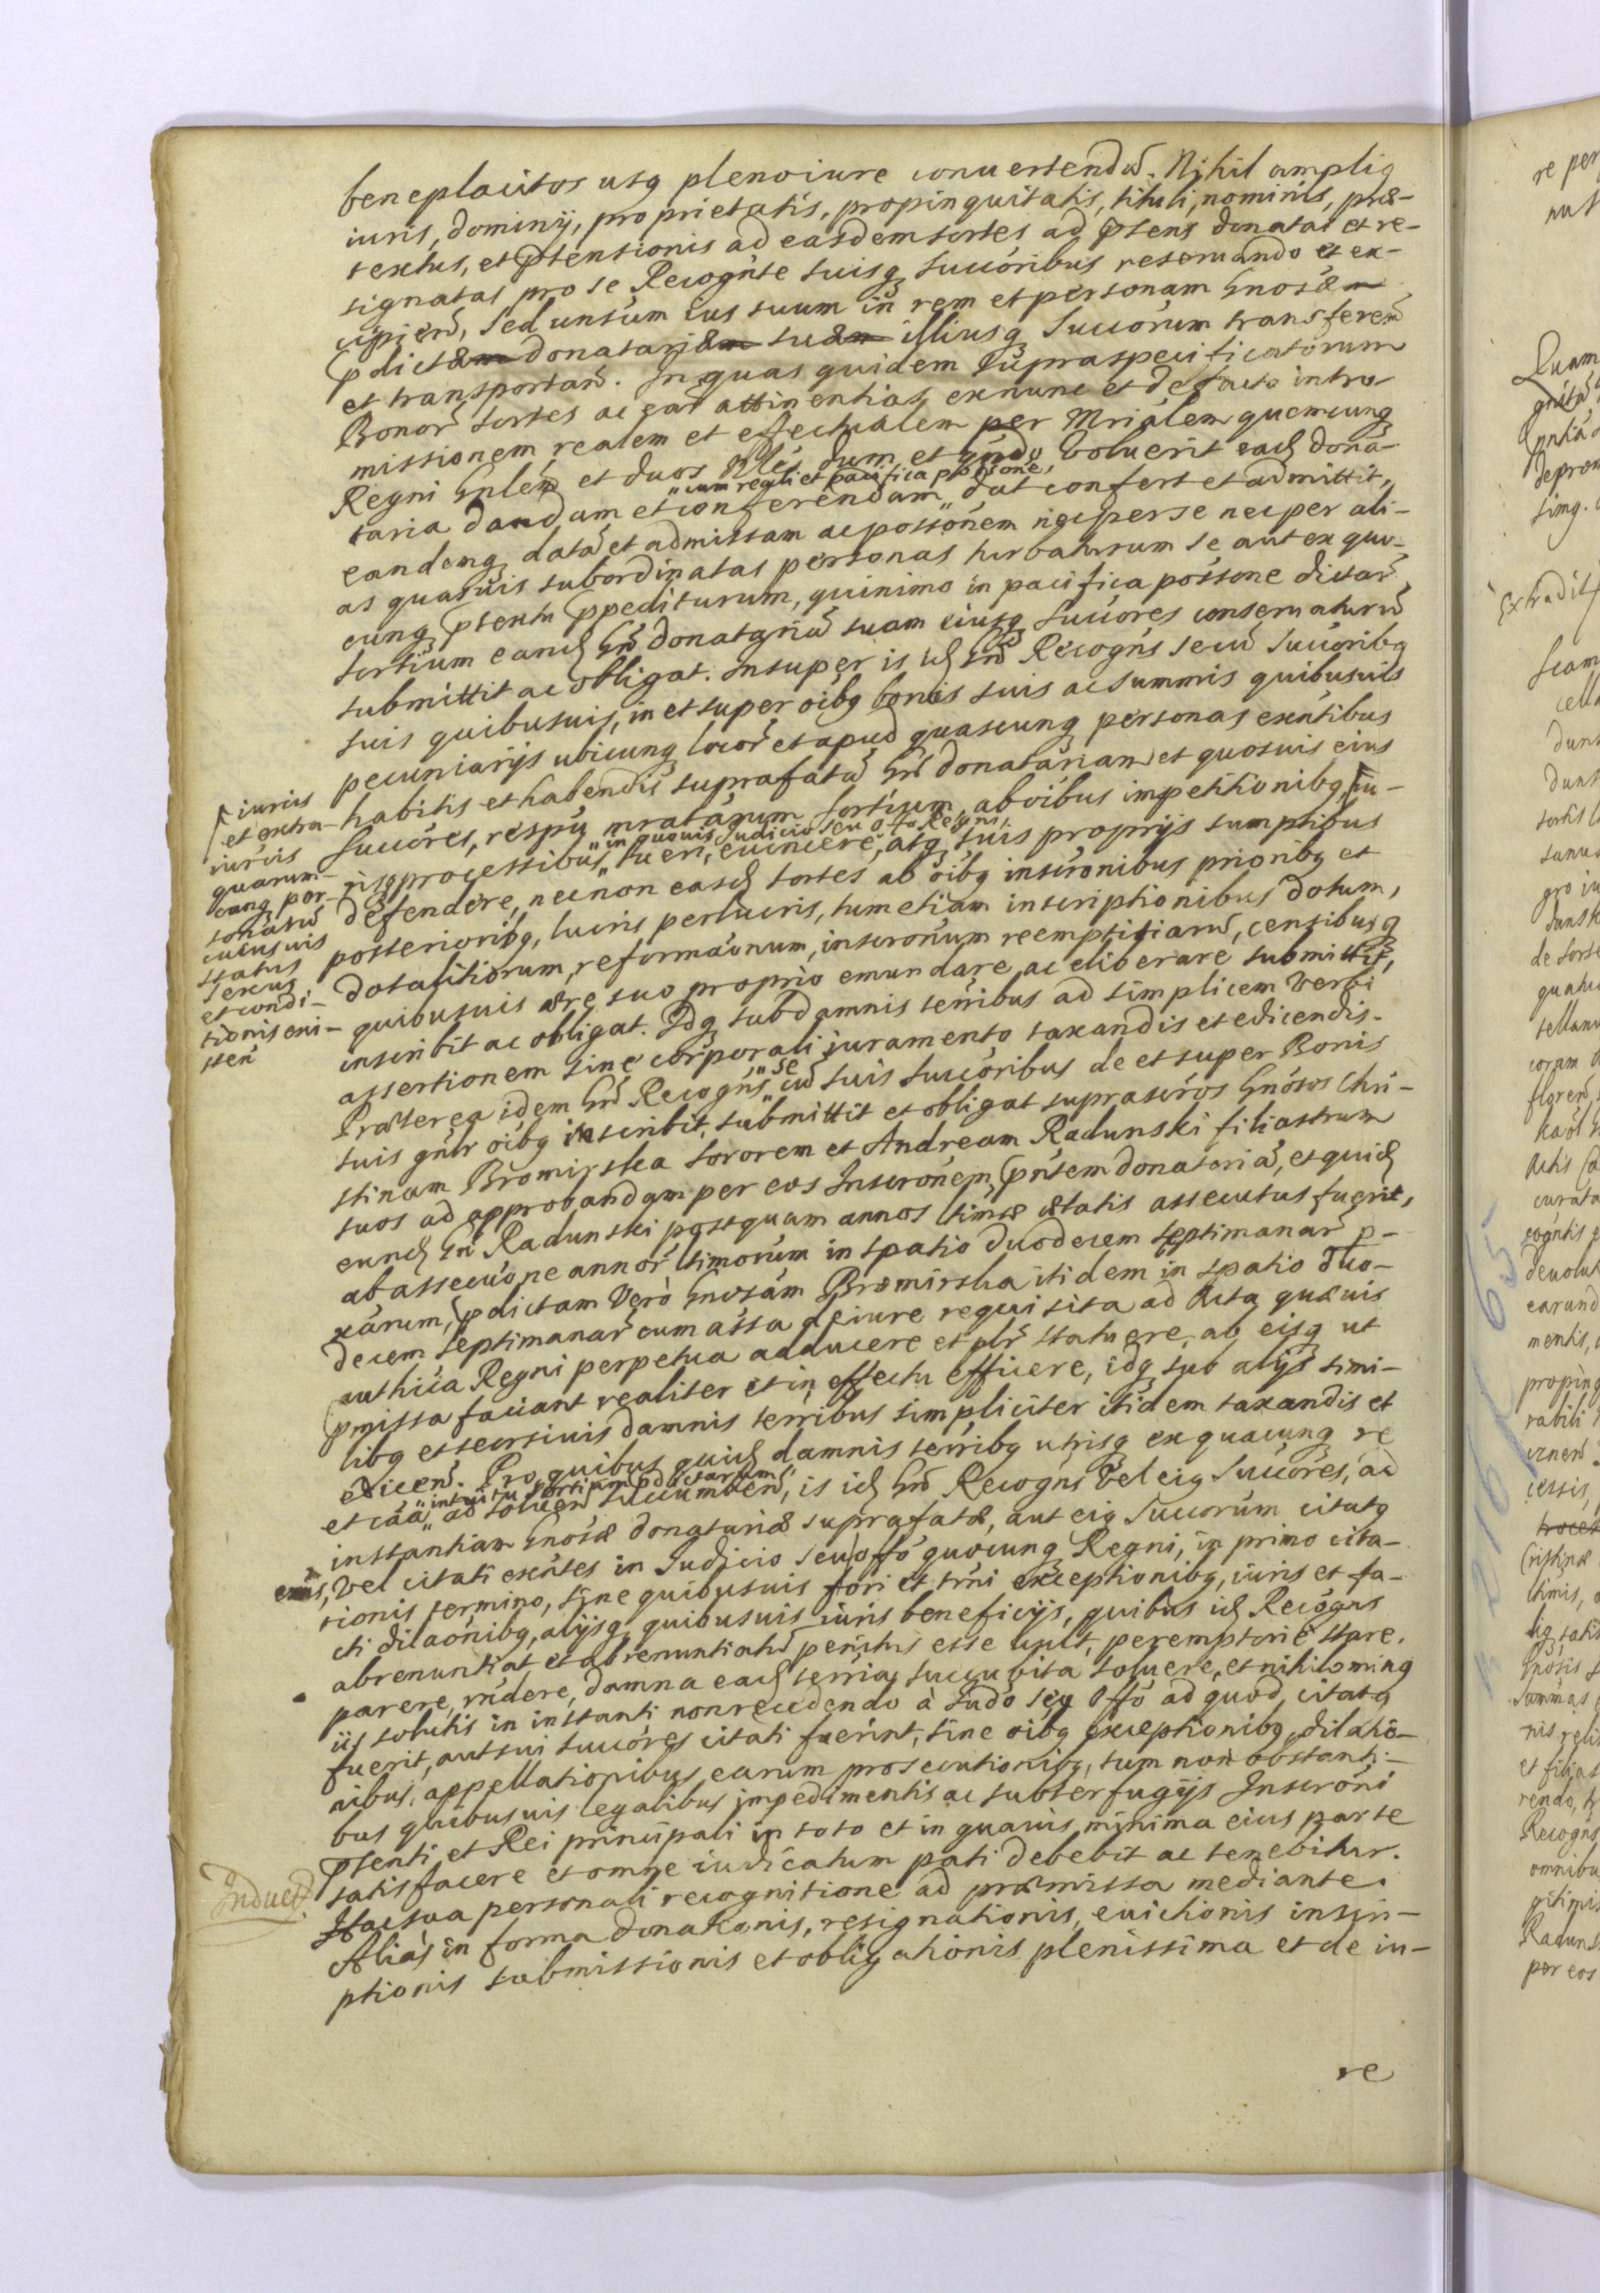 beneplacitos usq plenoiure convertendū. Nihil ampliq
iuris, dominij, proprietatis, propinquitatis, tituli, nominis, præ-
textus, et ptensionis ad easdem sortes ad ptens donatas et re-
signatas pro se Recognte suisq succoribus reservando et ex-
cipiendo, sed unsum ius suum in rem et personam Gnosæ
pdictæ donatariæ suæ illiusq succorum transferendo
et transportan. In quas quidem supraspecificatorum
Bonor sortes ac ear attinentias exnunc et de facto intro-
missionem realem et effectualem per Mrialem quemcunq
Regni Gnlem et duos Nles dum et qndo voluerit eadē dona-
taria dandam et conferendam "cum reali et pacifica possone" dat confert et admittit,
eandemq datā et admissam ac possonem nec per se nec per ali-
as quasvis subordinatas personas turbaturum se aut ex quo-
cunq ptextu ppediturum, quinimo in pacifica possone dictar
sortium eandē Gnā donatariā suam eiusq succores conservaturū
submittit ac obligat. Insuper is idē Gns Recogns secū succoribq
suis quibusvis, in et super oibq bonis suis ac summis quibusvis
pecuniarijs ubicunq locor et apud quascunq personas exntibus
habitis et habendis suprafatā Gnā donatariam et quosvis eius
succores, respū mratarum sortium, ab oibus impetitionibq, iu-
risq processibus "in quovis Judicio seu offo Regni" tueri, evincere, atq suis proprijs sumptibus
defendere, necnon easdē sortes ab oibq inscronibus prioribq et
posterioribq, lucris perlucris, tum etiam inscriptionibus dotum,
dotalitiorum, reformaonum, inscronum reemptitiarū, censibusq
quibusvis ære suo proprio emundare, ac eliberare submittit,
inscribit ac obligat. Idq sub damnis terribus ad simplicem verbi
assertionem sine corporali juramento taxandis et edicendis.
Præterea idem Gns Recogns "se" cū suis succoribus de et super Bonis
suis gnlr oibq inscribit, submittit et obligat suprascros Gnosos Chri-
stinam Bromirska sororem et Andream Radunski filiastrum
suos ad approbandam per eos Inscronem pntem donatoriā, et quidē
eundē Gn Radunski postquam annos ltimæ ætatis assecutus fuerit,
ab assecuone annor ltimorum in spatio duodecem septimanar p-
xarum, pdictam vero Gnosam Bromirska itidem in spatio duo-
decem septimanar cum assa de iure requisita ad Acta quævis
authica Regni perpetua adducere et plr statuere, ab eisq ut
pmissa faciant realiter et in effectu efficere, idq sub alijs simi-
libq et secutivis damnis terribus simpliciter itidem taxandis et
edicen. Pro quibus quidē damnis terribq utrisq ex quacunq re
et cāā "intuitu sortium pdictarum" ad solven succumben, is idē Gns Recogns vel eiq succores, ad
instantiam Gnosæ donatariæ suprafatæ, aut eiq succorum citatq
exns, vel citati exntes in Judicio seu offo quocunq Regni, in primo cita-
tionis termino, sine quibusvis fori et trni exceptionibq, iuris et fa-
cti dilaonibq, alijsq quibusvis iuris beneficijs, quibus idē Recogns
abrenuntiat et abrenuntiatū penitus esse vult, peremptorie stare.
parere, rndere, damna eadē terria succubita solvere, et nihilominq
iis solutis in instanti non recedendo à Judo seu Offo ad quod citatq
fuerit, aut sui succores citati fuerint, sine oibq exceptionibq, dilatio-
nibus, appellationibus, earum prosecutionibq, tum non obstanti-
bus quibusvis legalibus impedimentis ac subterfugijs Inscroni
ptenti et Rei principali in toto et in quavis minima eius parte
satisfacere et omne iudicatum pati debebit ac tenebitur.
Hac sua personali recognitione ad præmissa mediante.
Aliàs in forma donationis, resignationis, evictionis inscri-
ptionis submissionis et obligationis plenissima et de iu-
re
iuris
et extra
iuris
quarum-
cunq per-
sonarū
cuiusvis
status
sexus
et condi-
tionis exi-
sten
Induct.